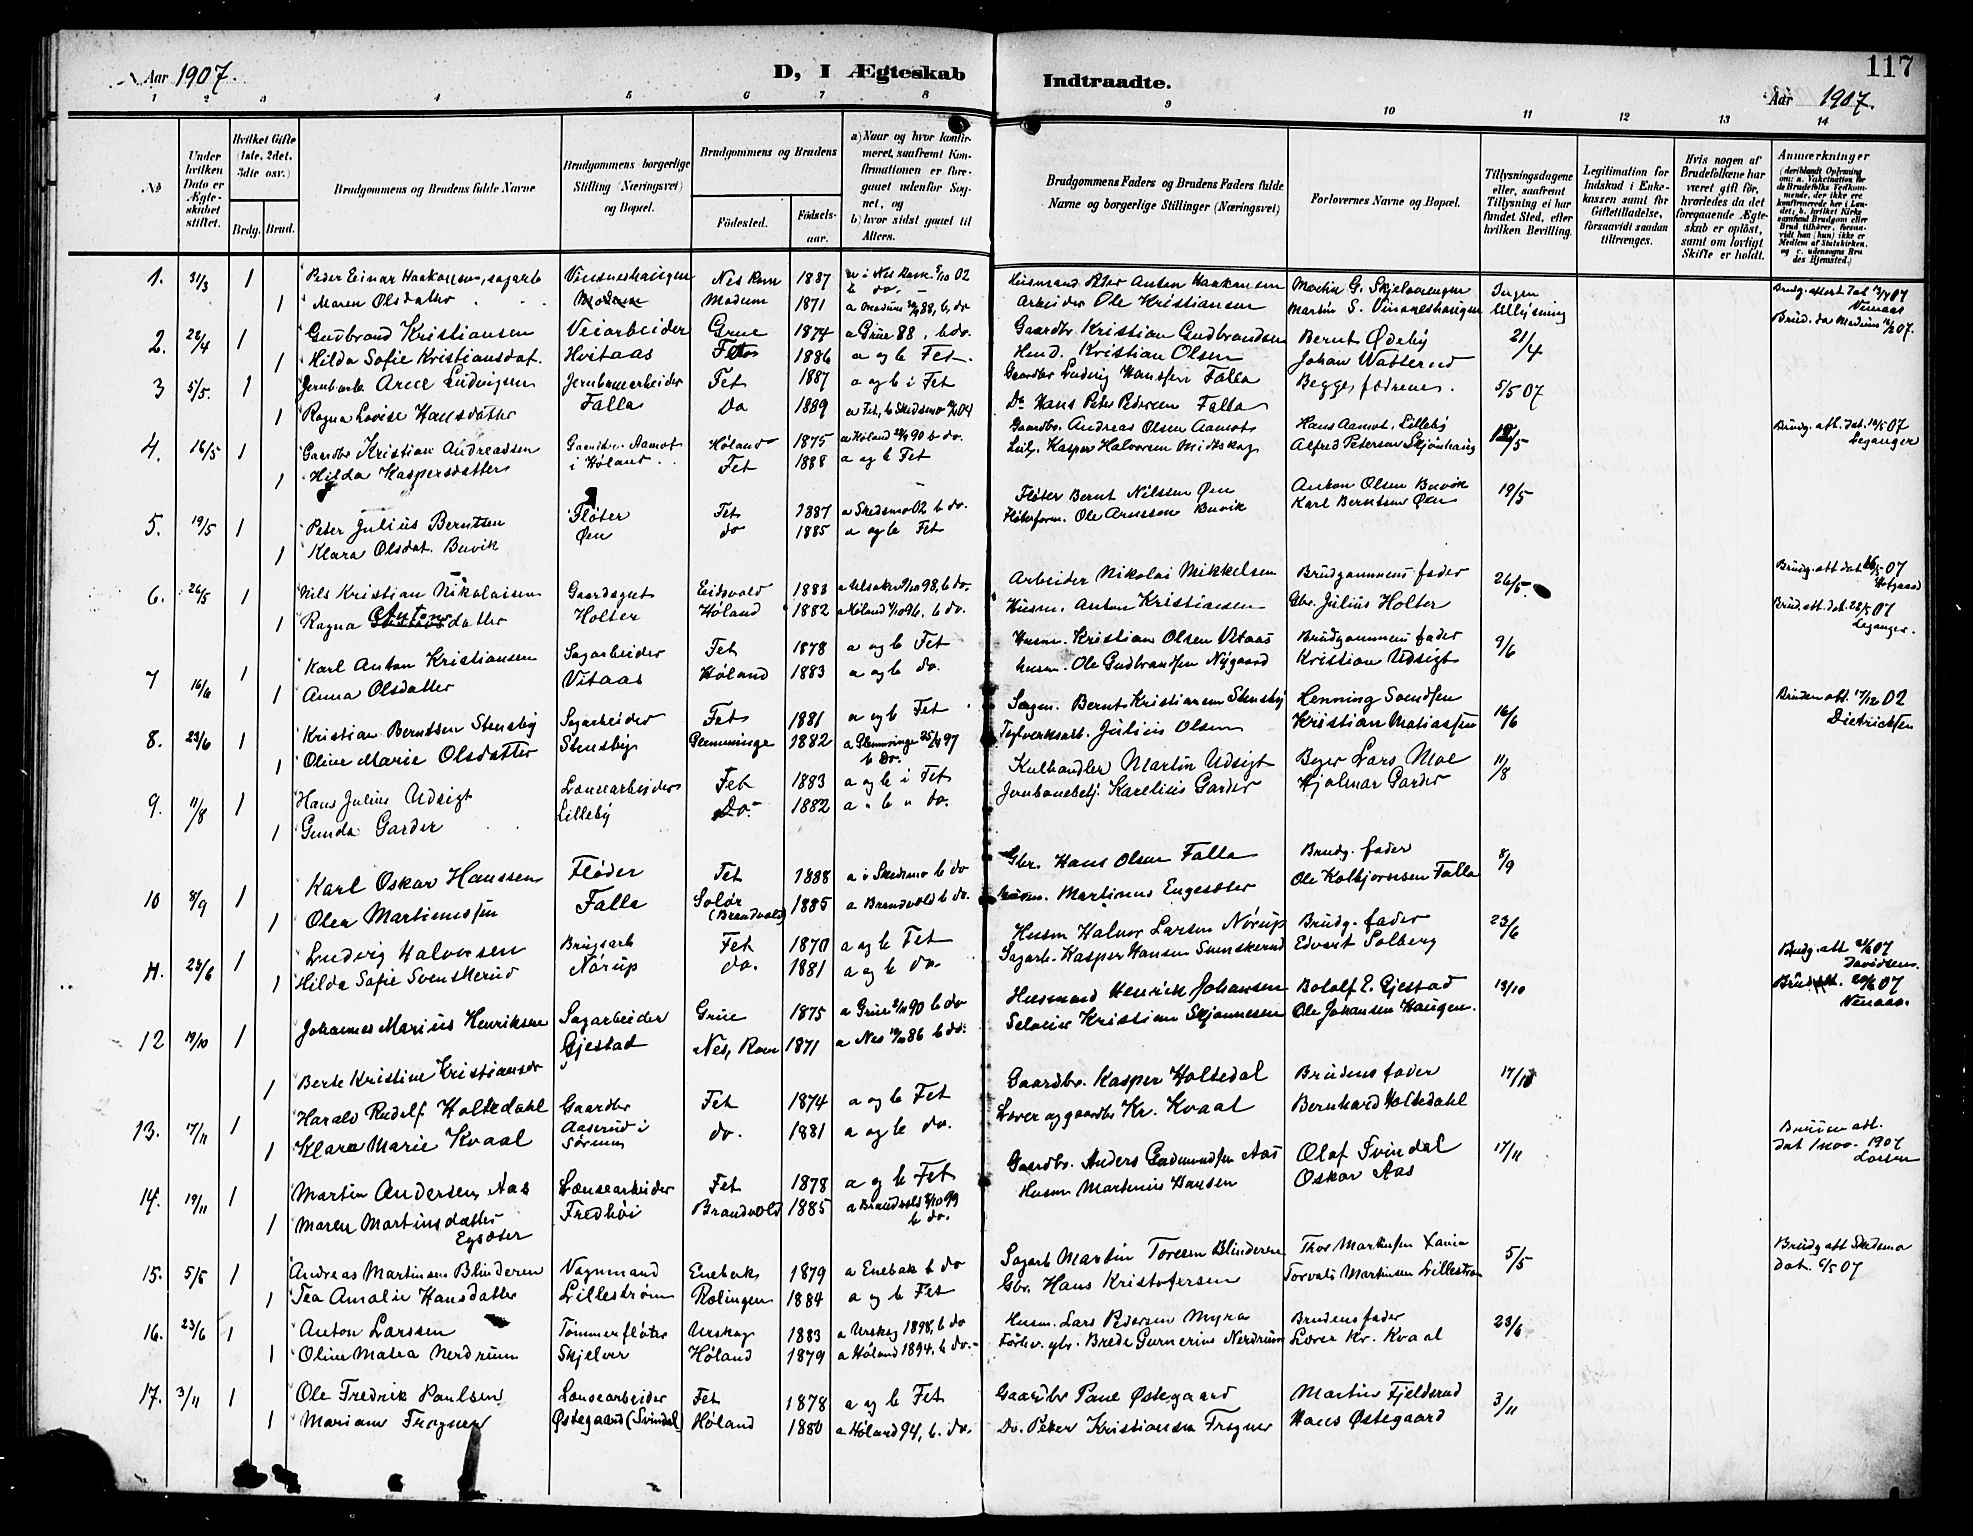 Aar 1907.
D, I Ægteskab Indtraadte.
117
Aar 1907.
1 2 3 4 5 6 7 8 9 10 11 12 13 14
No
Under hvilken Dato er Ægteskabet stiftet.
Hvilket Gifte (1ste, 2det, 3die osv.)
Brdg. Brud.
Brudgommens og Brudens fulde Navne
Brudgommens borgerlige Stilling (Næringsvei) og Bopæl.
Brudgommens og Brudens
Fødested. Fødselsaar.
a) Naar og hvor konfirmeret, saafremt Konfirmationen er foregaaet udenfor Sognet, og
b) hvor sidst gaaet til Alters.
Brudgommens Faders og Brudens Faders fulde Navne og borgerlige Stillinger (Næringsvei)
Forlovernes Navne og Bopæl.
Tillysningsdagene eller, saafremt Tillysning ei har fundet Sted, efter hvilken Bevilling.
Legitimation for Indskud i Enkekassen samt for Giftetilladelse, forsaavidt saadan tiltrænges.
Hvis nogen af Brudefolkene har været gift før, hvorledes da det foregaaende Ægteskab er opløst, samt om lovligt Skifte er holdt.
Anmærkninger
1. 31/3 1 Peder Einar Haakonsen, sagarb Vinsneshaugen Nes Rom 1887 Husmand Peter Anton Haakonsen Martin G. Skjelvorengen Ingen
1 Maren Olsdatter Modum 1871 a Modum 88, b do Arbeider Ole Kristiansen Martin S. Vinsneshaugen tillysning
2. 28/4 1 Gudbrand Kristiansen Veiarbeider Grue 1874 a Grue 88, b do. Gaardbr. Kristian Gudbrandsen Bernt Ødeby 21/4
1 Hilda Sofie Kristiansdat. Hvitaas Fet 1886 a og b Fet. Kristian Olsen Johan Watterud
3 5/5. 1 Jernbarb Arne Ludvigsen Jernbanearbeider Fet 1887 a og b i Fet Gaardbr Ludvig Hanssen Falla Begges fædrene. 5/5 07
1 Ragna Lovise Hansdatter Falla Do 1889 a Fet, b Skedsmo Do Hans Peter Pedersen Falla
4. 16/5 1 Gaardbr Kristian Andreassen Aamot Høland 1875 a Høland 90 b do. Gaardbr. Andreas Olsen Aamot Hans Aamot, Lilleby 12/5 Brudg. att. dat. 14/5 07
1 Hilda Kaspersdatter i Høland Fet 1888 a og b Fet Kasper Halvorsen Midtskog Alfred Petersen Skjønhaug Leganger
5. 19/5 1 Peter Julius Berntsen Fløter Fet 1887 a Skedsmo 02 b do. Fløter Bernt Nilssen Øen Anton Olsen Buvik 19/5
1 Klara Olsdat. Buvik Øen do 1885 a og b Fet Fløterform. Ole Arnesen Buvik Karl Berntsen Øen
6. 26/5 1 Nils Kristian Nikolaisen Gaardsgut Eidsvold 1883 Arbeider Nikolai Mikkelsen Brudgommens fader 26/5
1 Ragna Antonsdatter Holter Høland 1882 Husm. Anton Kristiansen Gbr. Julius Holter Leganger.
7 16/6 1 Karl Anton Kristiansen Sagarbeider Fet 1878 a og b Fet Husm. Kristian Olsen Vitaas Brudgommens fader 9/6
1 Anna Olsdatter Vitaas Høland 1883 a og b do. Husm. Ole Gudbrandsen Nygaard Kristian Udsigt
8. 23/6 1 Kristian Berntsen Stensby Sagarbeider Fet 1881 a og b Fet Bernt Kristiansen Stensby Henning Svendsen 16/6 Bruden att. 17/12 02
1 Oline Marie Olsdatter Stensby Glemminge 1882 a Glemminge 97 b Do. Teglverksarb. Julius Olsen Kristian Matiassen Dietrichsen
9. 11/8 1 Hans Julius Udsigt Lænsearbeider Fet 1883 a og b i Fet Kulhandler Martin Udsigt Lars Moe 11/8
1 Gunda Garder Lilleby Do. 1882 a " b " do. Jernbanebetj. Karelius Garder Hjalmar Garder
10 8/9 1 Karl Oskar Hanssen Fløder Fet 1888 a i Skedsmo b do Gbr. Hans Olsen Falla Brudg. fader 8/9
1 Olea Martinussen Falla Solør (Brandvold) 1885 a Brandvold b do. Husm. Martinus Engesæter Ole Kolbjørnsen Falla
11. 23/6 1 Ludvig Halvorsen Brugsarb Fet 1870 a og b Fet Husm Halvor Larsen Nørup Brudg. fader 23/6
1 Hilda Sofie Svenskerud Nørup do. 1881 a og b do. Sagarb. Kasper Hansen Svenskerud Edvart Solberg Davidsen.
12 19/10 1 Johannes Marius Henriksen Sagarbeider Grue 1875 a Grue 90 b do Husmand Henrik Johansen Botolf E. Gjestad 13/10
1 Berte Kristine Kristiansdr Gjestad Nes, Rom 1871 a Nes 86 b do. Selveier Kristian Skjønnesen Ole Johansen Haugen.
13. 17/11 1 Harald Rudolf Holtedahl Gaardbr Fet 1874 a og b Fet Gaardbr. Kasper Holtedal Brudens fader 17/11
1 Klara Marie Kvaal Aaserud i Sørum do. 1881 a og b do. Lærer og gaardbr Kr. Kvaal Bernhard Holtedahl
14. 19/11 1 Martin Andersen Aas Lænsearbeider Fet 1878 a og b Fet Gaardbr. Anders Gudmundsen Aas Olaf Svindal 17/11 Bruden att. dat 1 nov. 1907
1 Maren Martinsdatter Egsæter Fredhøi Brandvold 1885 a Brandvold 99 b do. Husm Martinius Hansen Oskar Aas Larsen
15. 5/5 1 Andreas Martinsen Blinderen Vognmand Enebak 1879 a Enebak b do Sagarb Martin Toresen Blinderen Thor Martinsen 5/5 Brudg att Skedsmo
1 Tea Amalie Hansdatter Lillestrøm Rælingen 1884 a og b Fet Gbr. Hans Kristofersen Torvald Martinsen Lillestrøm dat. 6/5 07
16. 23/6 1 Anton Larssen Tømmerfløter Urskog 1883 a Urskog 1898, b do Husm. Lars Pedersen Myra Brudens fader 23/6
1 Oline Matea Nerdrum Skjelver Høland 1879 a Høland 1894, b do. Brede Gunerius Nerdrum Lærer Kr. Kvaal
17. 3/11 1 Ole Fredrik Paulsen Lænsearbeider Fet 1878 a og b Fet Gaardbr Paul Østegaard Martin Fjeldsrud 3/11
1 Mariane Frogner Østegaard (Svindal) Høland 1880 a Høland 94, b. do. Do. Peter Kristiansen Frogner Hans Østegaard